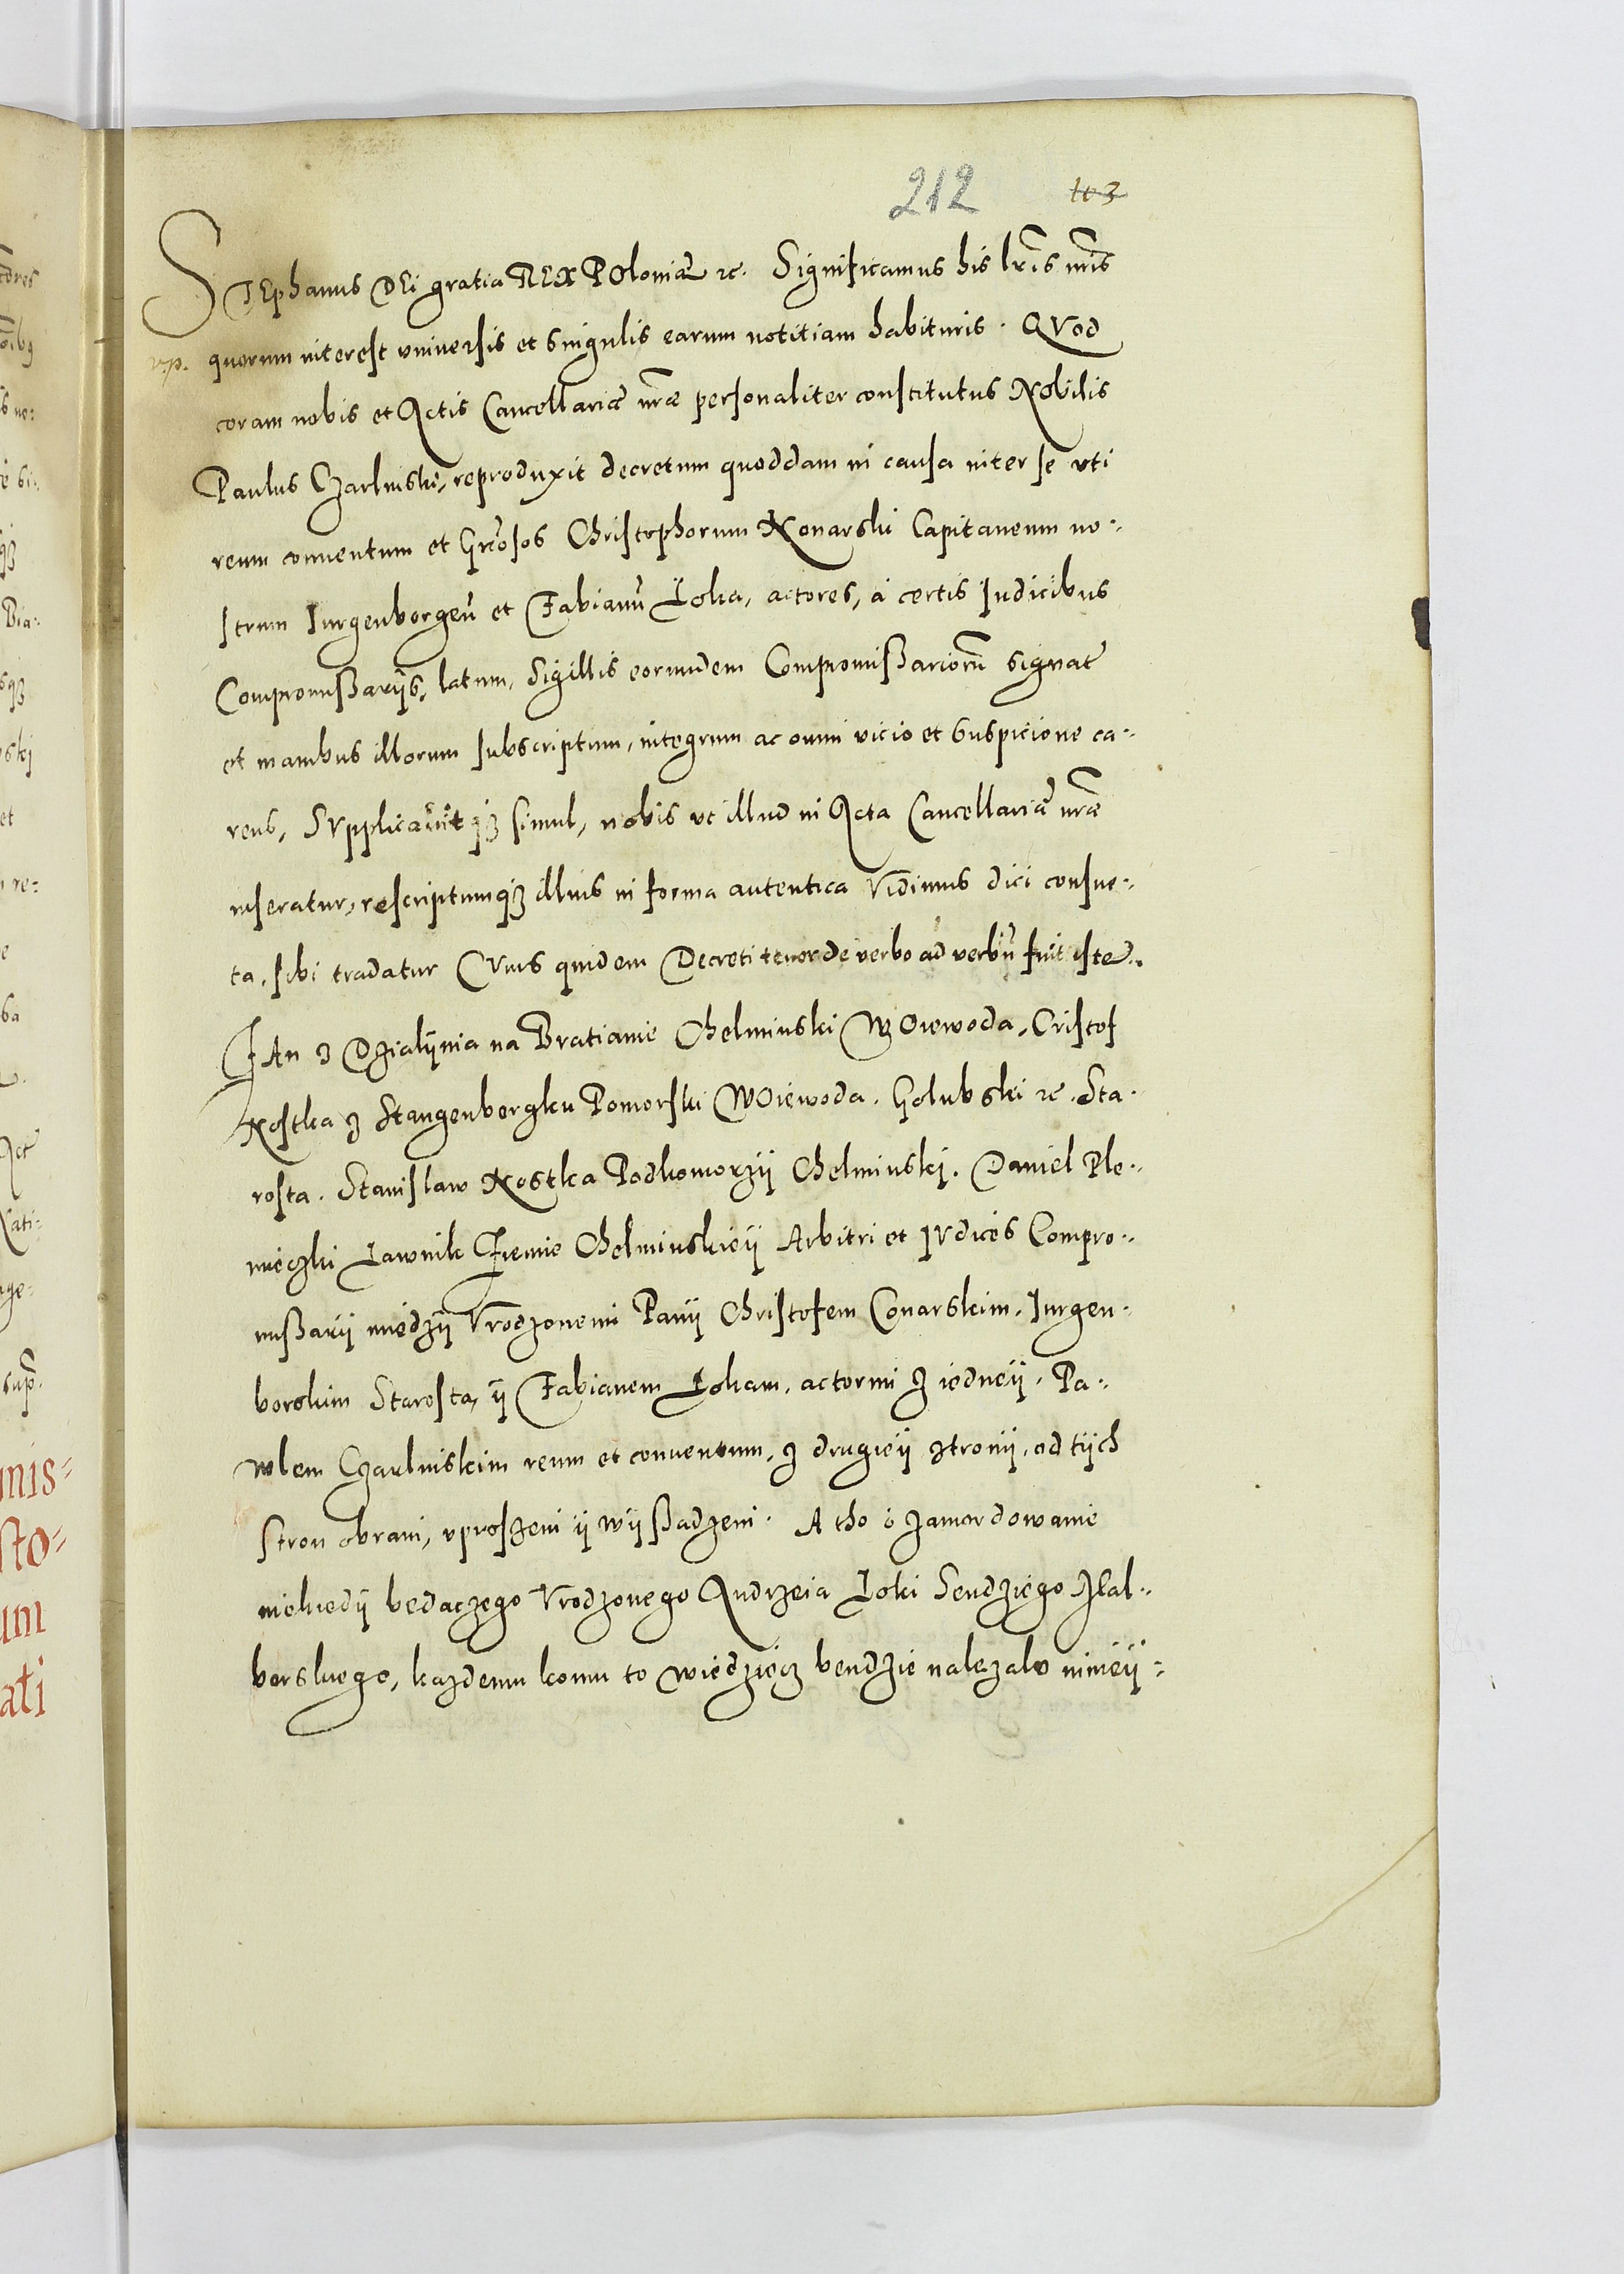 212 103
STEphanus DEi gratia REX POloniæ ꝛc. Significamus his lr̃is nr̃is
v.p. quorum interest vniuersis et singulis earum notitiam habituris. QVod
coram nobis et Actis Cancellariæ nr̃æ personaliter constitutus Nobilis
Paulus Czarlinski, reproduxit decretum quoddam in causa inter se vti
reum conuentum et Gñosos Christophorum Konarski Capitaneum no⸗
strum Jurgenborgeñ et Fabianũ Loka, actores, à certis Judicibus
Compromißarijs, latum, Sigillis eorundem Compromißariorũ signat̃
et manibus illorum subscriptum, integrum ac omni vicio et suspicione ca⸗
rens, SVpplicauitqȝ simul, nobis vt illud in Acta Cancellariæ nr̃æ
inseratur, rescriptumqȝ illius in forma autentica Vidimus dici consue⸗
ta, sibi tradatur CVius quidem Decreti tenor de verbo ad verbũ fuit iste.
JAn z Dzialÿnia na Bratianie Chelminski WOiewoda, Cristof
Kostka z Stangenbergku Pomorski WOiewoda. Golubski ꝛc. Sta⸗
rosta. Stanislaw Kostka Podkomorzÿ Chelminskj. Daniel Ple⸗
mieczki Lawnik Ziemie Chelminskieÿ Arbitri et JVdices Compro⸗
mißarij miedzÿ Vrodzonemi Panÿ Christofem Conarskim. Jurgen⸗
borskim Starosta, ÿ Fabianem Lokam, actormi z iedneÿ. Pa⸗
wlem Czarlinskim reum et conuentum, z drugieÿ ztronÿ, od tÿch
stron obrani, vproszeni ÿ wÿ ßadzeni. A tho o zamordowanie
niekiedÿ bedaczego Vrodzonego Andrzeia Loki Sendziego Mal⸗
borskiego, kazdemu komu to wiedziecz bendzie nalezalo ninieÿ⸗